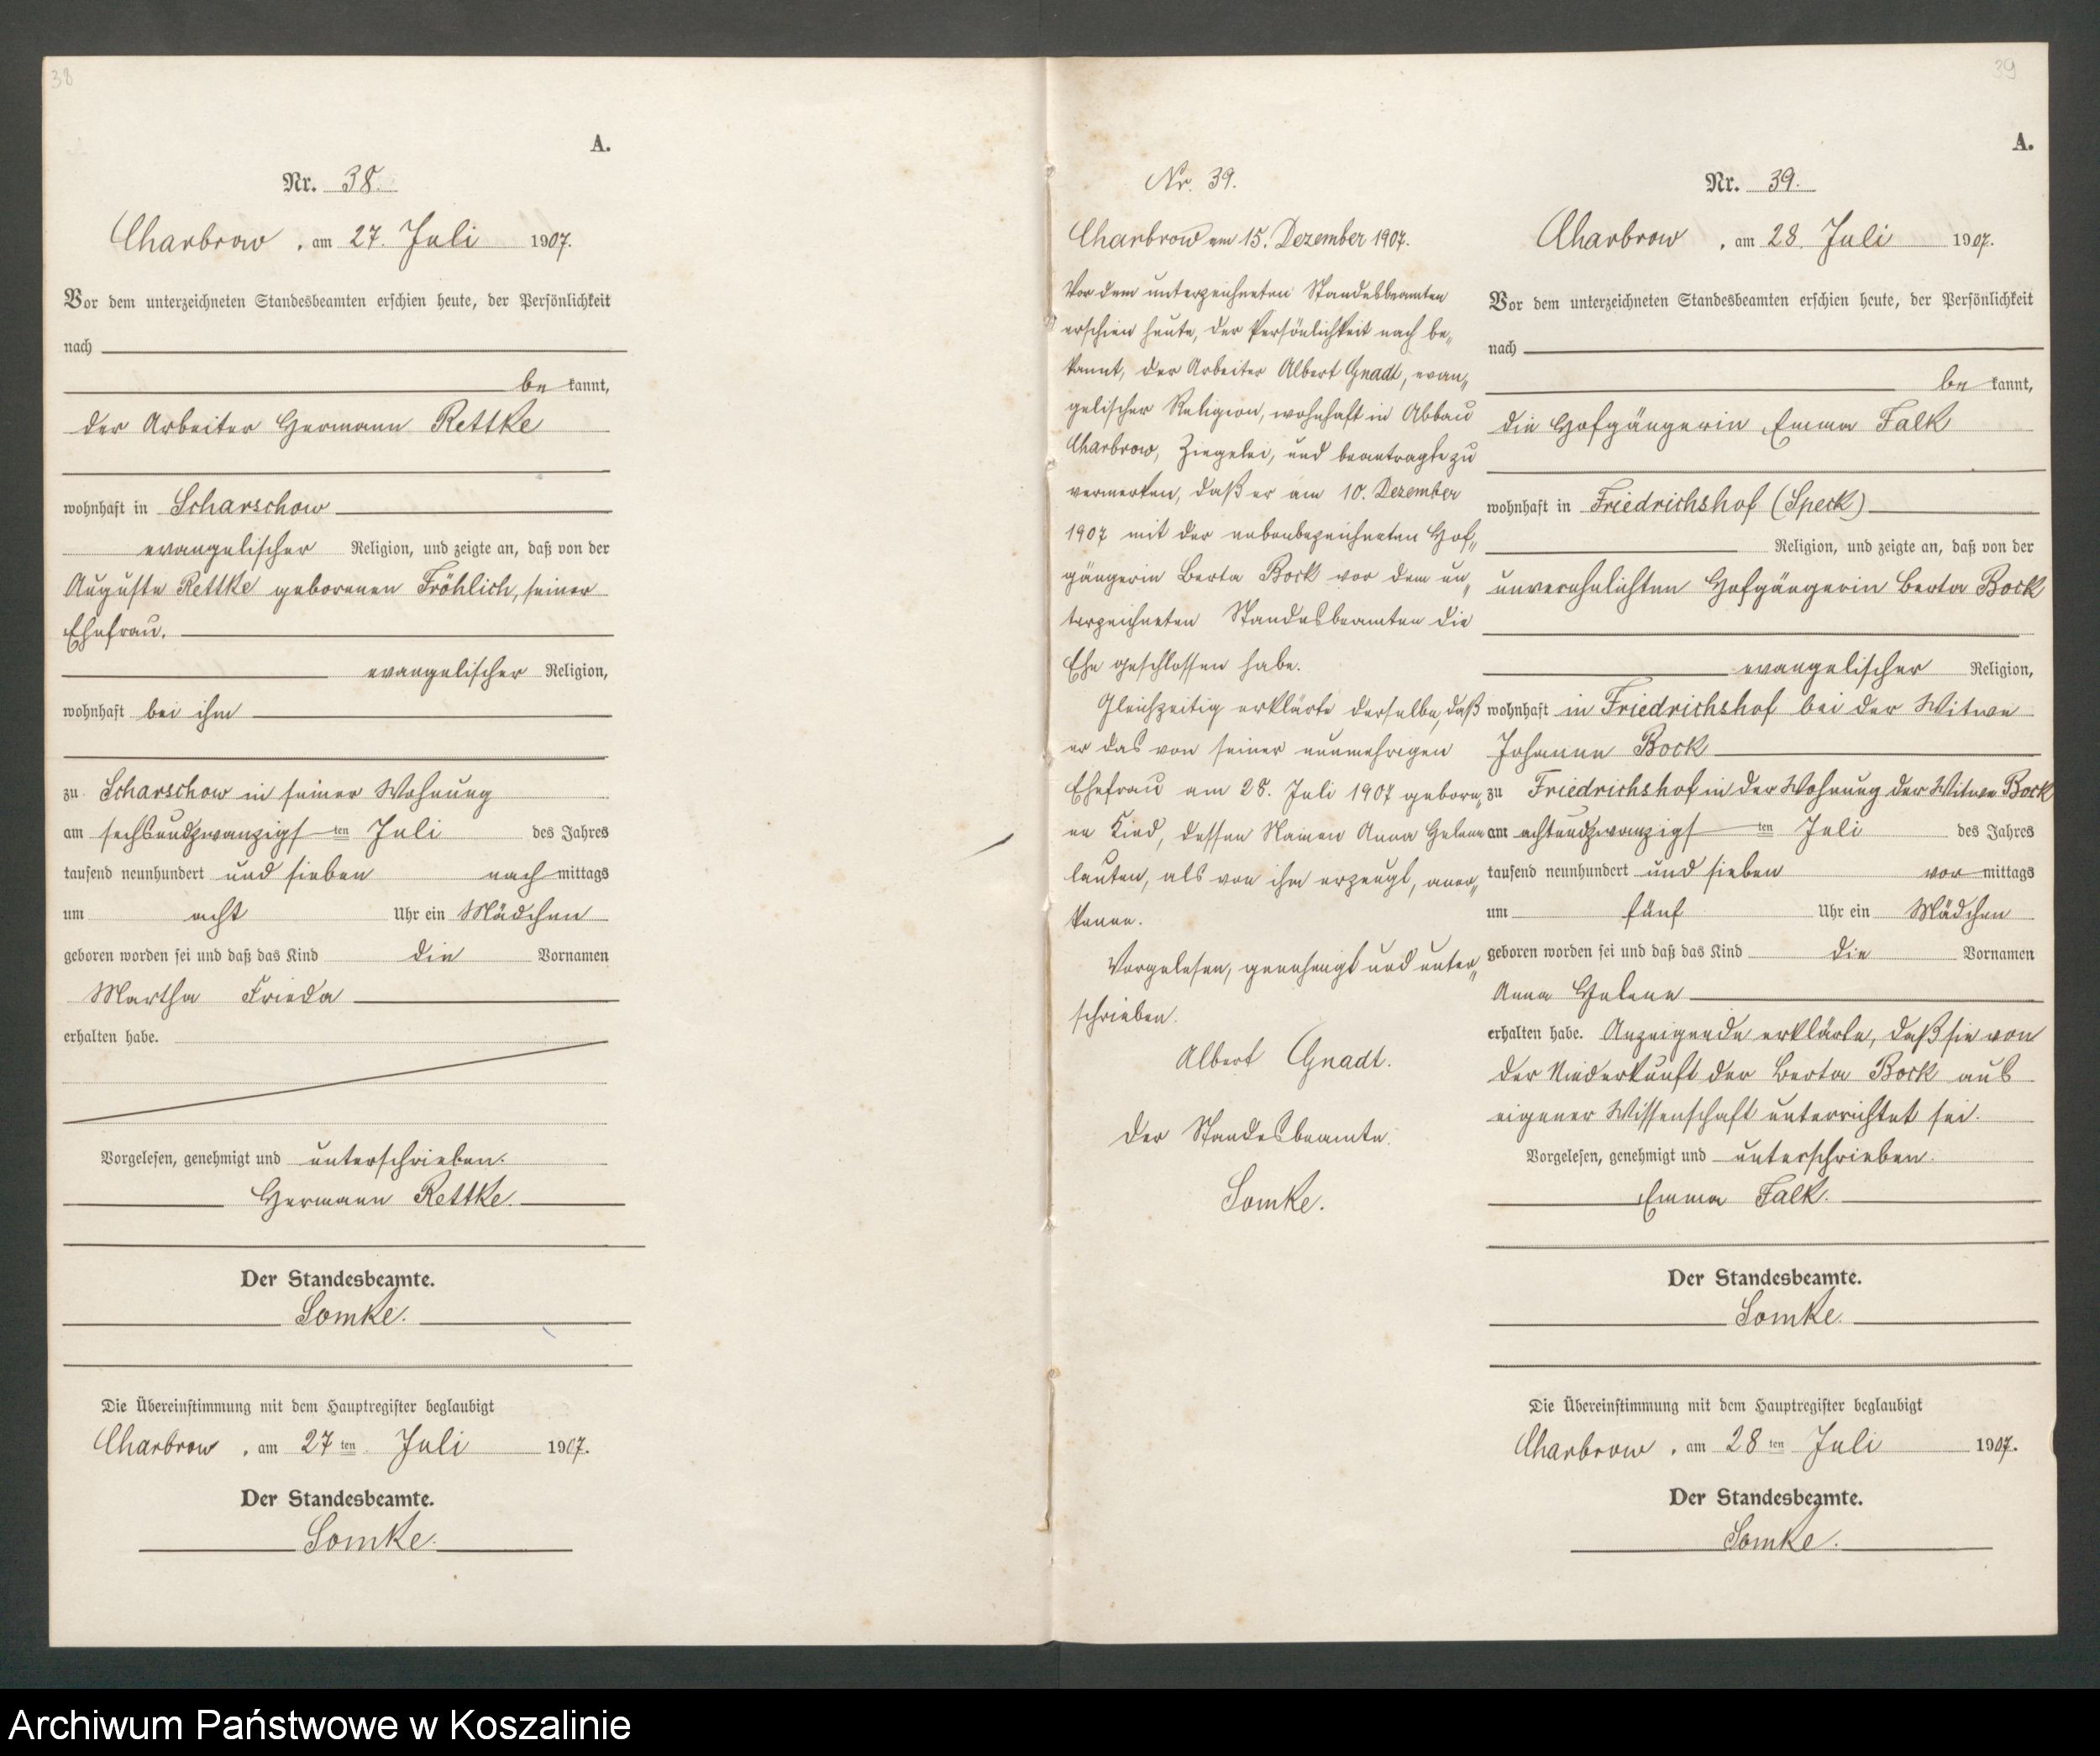 38
A.
Nr. 38.
Charbrow, am 27. Juli 1907.
Vor dem unterzeichneten Standesbeamten erschien heute, der Persönlichkeit
nach
be kannt,
der Arbeiter Hermann Rettke
wohnhaft in Scharschow
evangelischer Religion, und zeigte an, daß von der
Auguste Rettke geborenen Fröhlich, seiner
Ehefrau,
evangelischer Religion,
wohnhaft bei ihm
zu Scharschow in seiner Wohnung
am sechsundzwanzigsten Juli des Jahres
tausend neunhundert und sieben nachmittags
um acht Uhr ein Mädchen
geboren worden sei und daß das Kind die Vornamen
Martha Frieda
erhalten habe.
Vorgelesen, genehmigt und unterschrieben.
Hermann Rettke.
Der Standesbeamte.
Somke.
Die Übereinstimmung mit dem Hauptregister beglaubigt
Charbrow, am 27ten Juli 1907.
Der Standesbeamte.
Somke.
Nr. 39.
Charbrow am 15. Dezember 1907.
Vor dem unterzeichneten Standesbeamten
erschien heute, der Persönlichkeit nach be„
kannt, der Arbeiter Albert Gnadt, evan„
gelischer Religion, wohnhaft in Abbau
Charbrow, Ziegelei, und beantragte zu
vermerken, daß er am 10. Dezember
1907 mit der nebenbezeichneten Hof„
gängerin Berta Bock vor dem un„
terzeichneten Standesbeamten die
Ehe geschlossen habe.
Gleichzeitig erklärte derselbe, daß
er das von seiner nunmehrigen
Ehefrau am 28. Juli 1907 gebore„
ne Kind, dessen Namen Anna Helene
lauten, als von ihm erzeugt, aner„
kenne.
Vorgelesen, genehmigt und unter„
schrieben.
Albert Gnadt.
Der Standesbeamte.
Somke.
39
A.
Nr. 39.
Charbrow, am 28. Juli 1907.
Vor dem unterzeichneten Standesbeamten erschien heute, der Persönlichkeit
nach
be kannt,
die Hofgängerin Emma Falk
wohnhaft in Friedrichshof (Speck)
Religion, und zeigte an, daß von der
unverehelichten Hofgängerin Berta Bock
evangelischer Religion,
wohnhaft in Friedrichshof bei der Witwe
Johanne Bock
zu Friedrichshof in der Wohnung der Witwe Bock
am achtundzwanzigsten Juli des Jahres
tausend neunhundert und sieben vormittags
um fünf Uhr ein Mädchen
geboren worden sei und daß das Kind die Vornamen
Anna Helene
erhalten habe. Anzeigende erklärte, daß sie von
der Niederkunft der Berta Bock aus
eigener Wissenschaft unterrichtet sei.
Vorgelesen, genehmigt und unterschrieben.
Emma Falk.
Der Standesbeamte.
Somke.
Die Übereinstimmung mit dem Hauptregister beglaubigt
Charbrow, am 28ten Juli 1907.
Der Standesbeamte.
Somke.
Archiwum Państwowe w Koszalinie